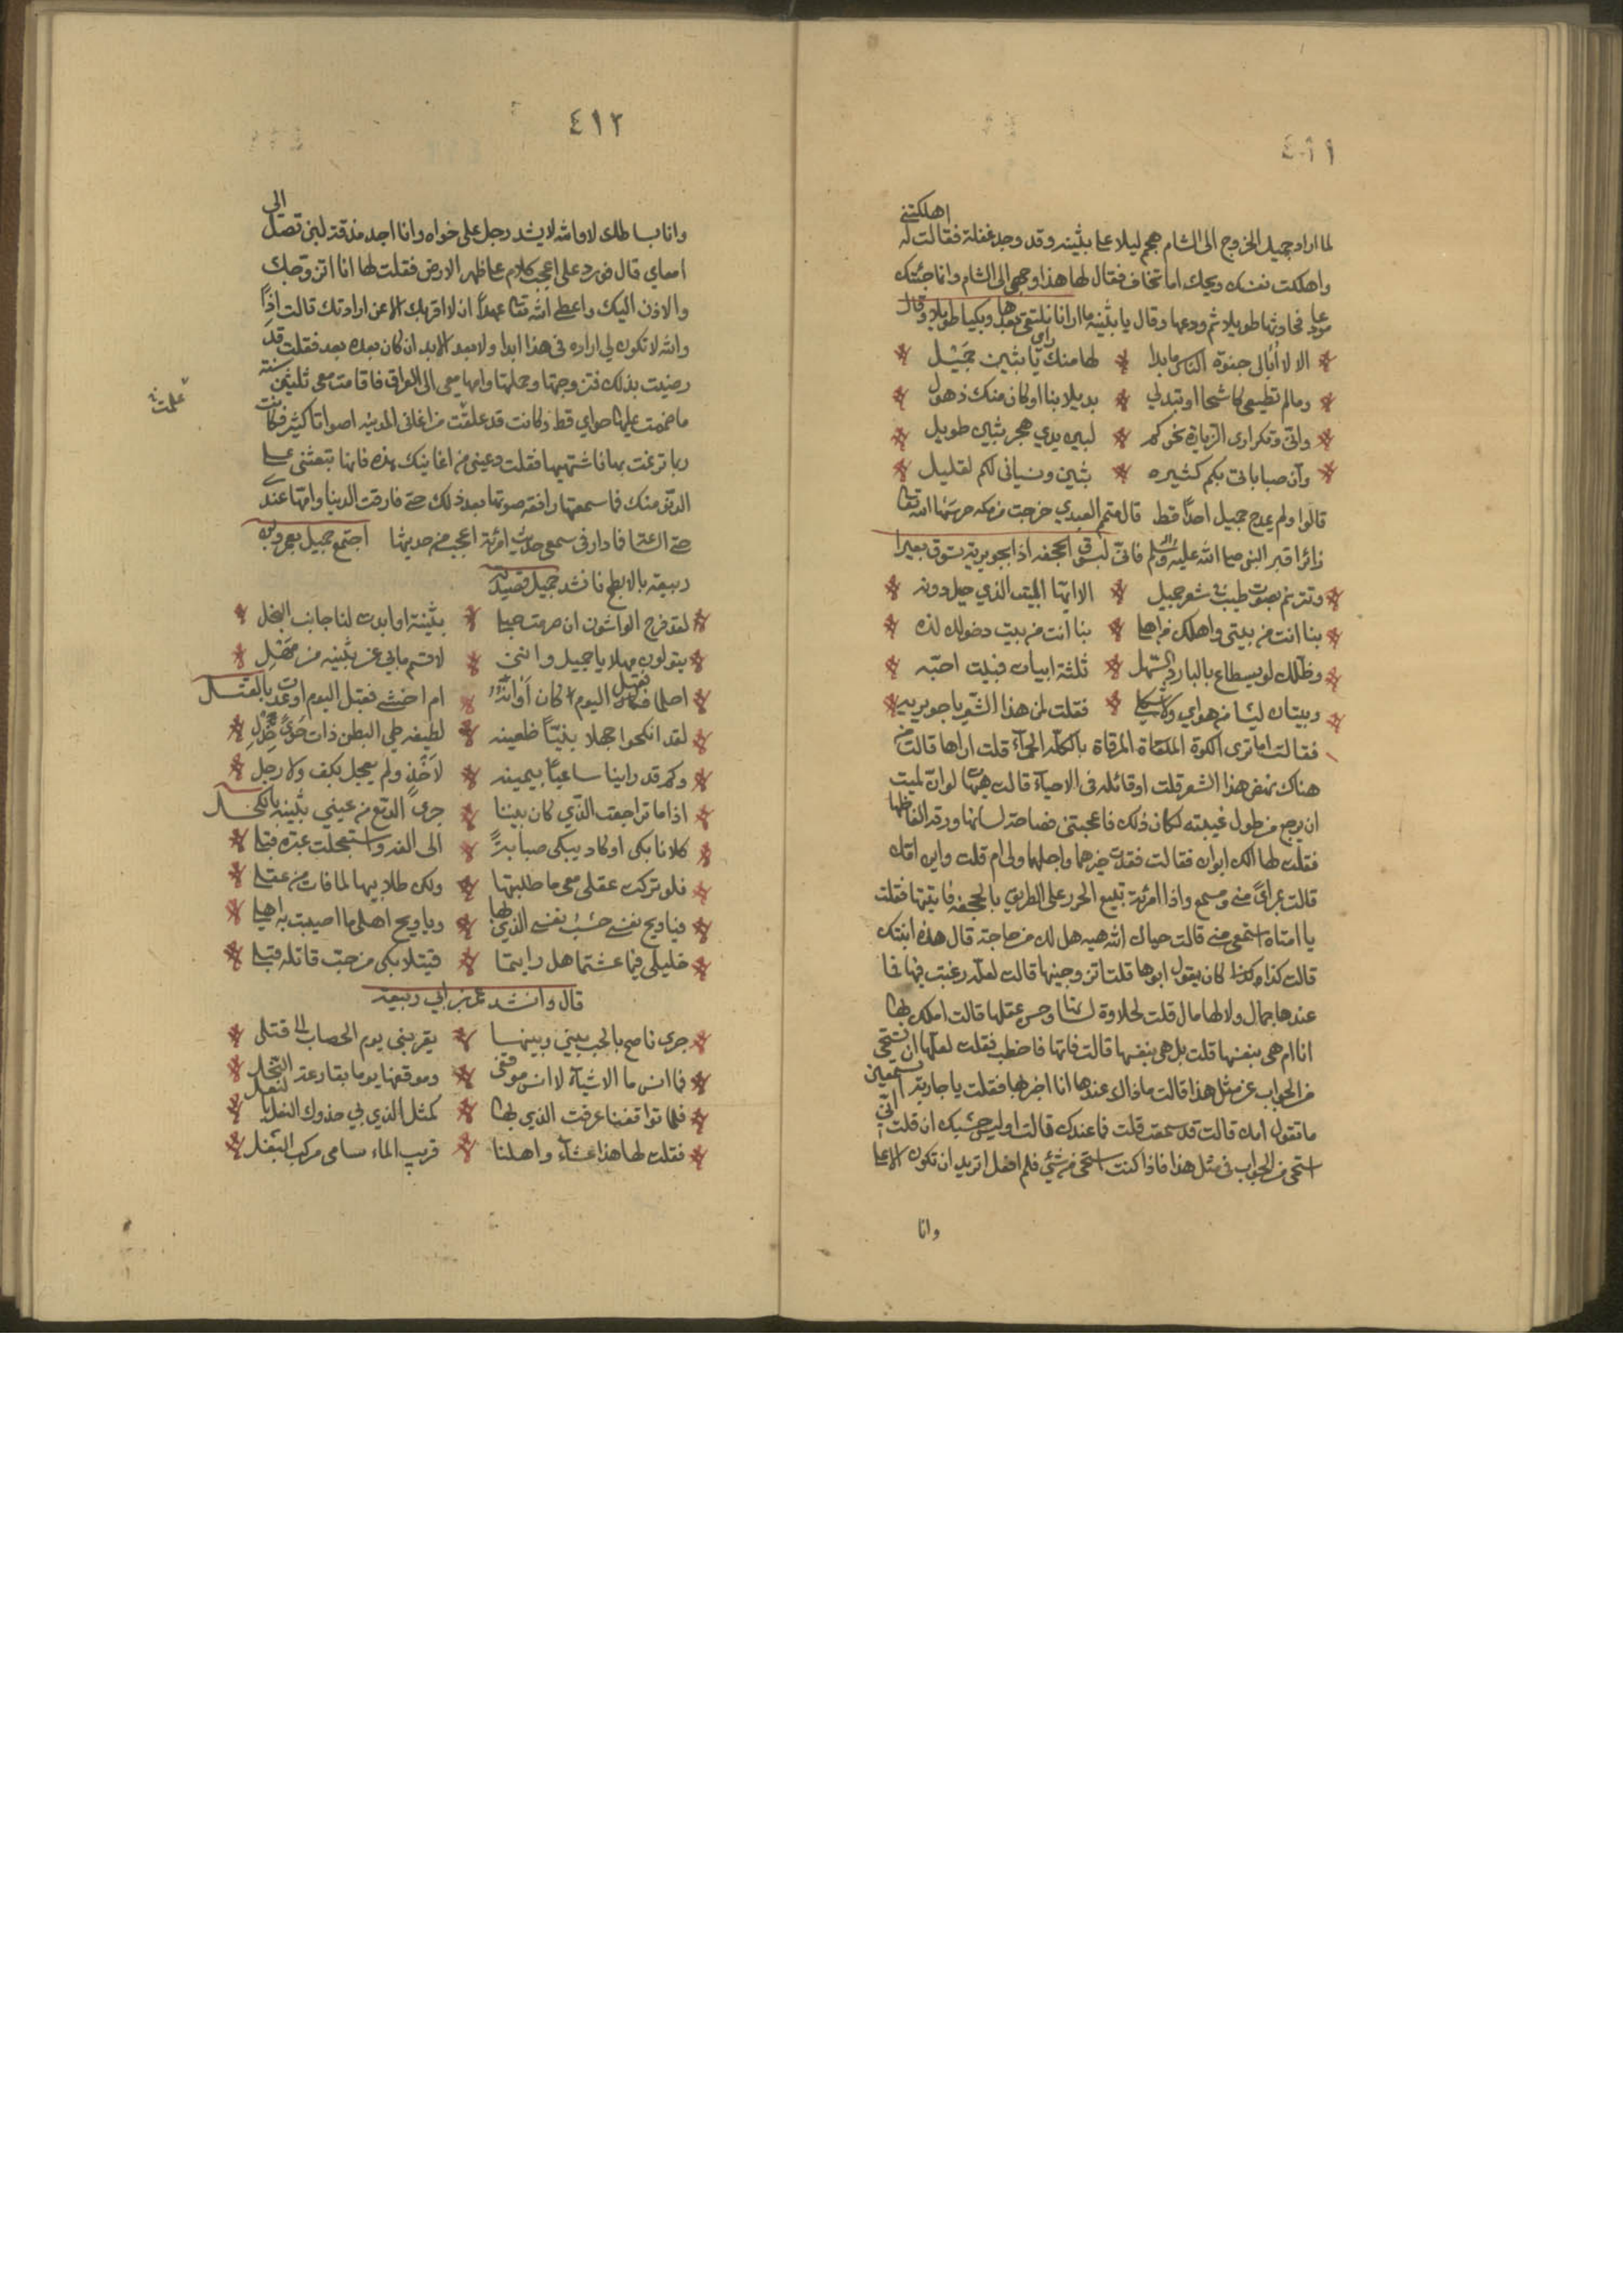 ٤١١
اهلكتني
لما اراد جميل الخروج الى الشام هجم ليلا على بثينه وقد وجد غفلة فقالت له
واهلكت نفسك ويحك اما تخاف فقال لها هذا وجهي الى الشام وانما جئتك
مودعا فحادثها طويلا ثم ودعها وقال يا بثينه ما ارانا نلتقي بعدها وبكيا طويلا وقال
الا لا ابالي جفوة الناس ما بدا لها منك راي يا بثين جميل
ومالم تطيعي كاشحا او تبدلي بديلا بنا او كان منك ذهول
واني وتكراري الزيارة نحوكم لبين يدي هجر بثين طويل
وان صباباتي بكم كثيره بثين ونسياني لكم لقليل
قالوا ولم يمدح جميل احدا قط قال العبدي خرجت من مكه حرسها الله تعالى
زائرا قبر النبي صلى الله عليه وسلم فاني لبسوق الجحفه اذا بجويرية تسوق بعيرا
وتترنم بصوت طيب في شعر جميل الا ايها البيت الذي حيل دونه
بنا انت من بيتي واهلك من اهل بنا انت من بيت دخولك لذه
وظلك لو يسطاع بالبارد السهل ثلثة ابيات فبيت احبه
وبيتان ليسا من هواي ولا شكلي فقلت لمن هذا الشعر يا جويريه
فقالت اما ترى الكوة الملقاة المرقاة بالكلة الحمراء قلت اراها قالت من
هناك نهض هذا الشعر قلت او قائله في الاحياء قالت هيهات لو ان لميت
ان يرجع من طول غيبته لكان ذلك فاعجبتني فصاحة لسانها ورقة الفاظها
فقلت لها الك ابوان فقالت فقدت خيرهما واجلهما ولي ام قلت واين امك
قالت بمراى منك ومسمع واذا امرئة تبيع الحرز على الطريق بالجحفه فاتيتها فقلت
يا امتاه استمعي مني قالت حياك الله هيه هل لك من حاجة قال هذه ابنتك
قالت كذا وكذا كان يقول ابوها قلت اتزوجينها قالت لعله رغبت فيها فما
عندها جمال ولا لها مال قلت لحلاوة لسانها وحسن عقلها قالت املك بها
انا ام هي بنفسها قلت بل هي بنفسها قالت فايها فاخطب فقلت لعلها ان تستحي
من الجواب عن مثل هذا قالت ما ذاك عندها انا اخبر بها فقلت يا جارية اتسمعين
ما تقول امك قالت قد سمعت قلت فما عندك قالت اوليس حسبك ان قلت اني
استحي من الجواب في مثل هذا فاذا كنت استحي من شيئ فلم افعل اتريد ان تكون الاعلى
وانا
٤١٢
وانا بساطك لا والله لا يشد رجل على خواه وانا اجد مذقة لبن تصل الى
امعاي قال فورد على اعجب كلام على ظهر الارض فقلت لها انا اتزوجك
والاذن اليك واعطي الله تعالى عهدا ان لا اقربك الا عن ارادتك قالت اذا
والله لا تكون لي اراده في هذا ابدا ولا بعد الابد ان كان بعده بعد فقلت قد
رضيت بذلك فتزوجتها وحملتها وامها معي الى العراق فاقامت معي ثلثين سنة
ما ضممت عليها حواي قط وكانت قد علقت من اغاني المدينه اصواتا كثيرة فكانت
علمت
ربما ترنمت بها فاشتهيها فقلت دعيني من اغانيك هذه فانها تبعثني على
الدنو منك فما سمعتها رافعة صوتها بعد ذلك حتى فارقت الدنيا وامها عندي
حتى الساعة فما دار في سمعي حديث امرئة اعجب من حديثها اجتمع جميل بعمر وبن
ربيعة بالابطح فانشد جميل قصيدته
لقد فرح الواشون ان صرمت حبلي بثينة او ابدت لنا جانب البخل
يقولون مهلا يا جميل وانني لاقسم مالي عن بثينه من مهل
احلما فقبل اليوم كان اوانه ام اخشى فقبل اليوم اوعدت بالقتل
لقد انكحوا جهلا نبيها ظعينه لطيفه طي البطن ذات شوى خدل
وكم قد راينا ساعيا بنميمه لاخر ولم يعجل بكف ولا رجل
اذا ما تراجعت الذي كان بيننا جرى الدمع من عيني بثينة بالكحل
كلانا بكى او كاد يبكي صبابة الى الفه واستعجلت عبرة قبلي
فلو تركت عقلي معي ما طلبتها ولكن طلابيها لما فات من عقلي
فيا ويح نفسي حسب نفسي الذي بها ويا ويح اهلي ما اصيبت به اهلي
خليلي فيما عشتما هل رايتما قتيلا بكى من حب قاتله قبلي
قال وانشد عمر بن ابي ربيعة
جرى ناصح بالحب بيني وبينها يقربني يوم الحصاب الى قتلي
فما انس ما الاشياء لا انس موقفي وموقفها يوما بقارعة النخل
فلما تواقفنا عرفت الذي بها كمثل الذي بي حذوك النعل بالنعل
فقلت لها هذا عشاء واهلنا قريب الماء سامى مركب البغل